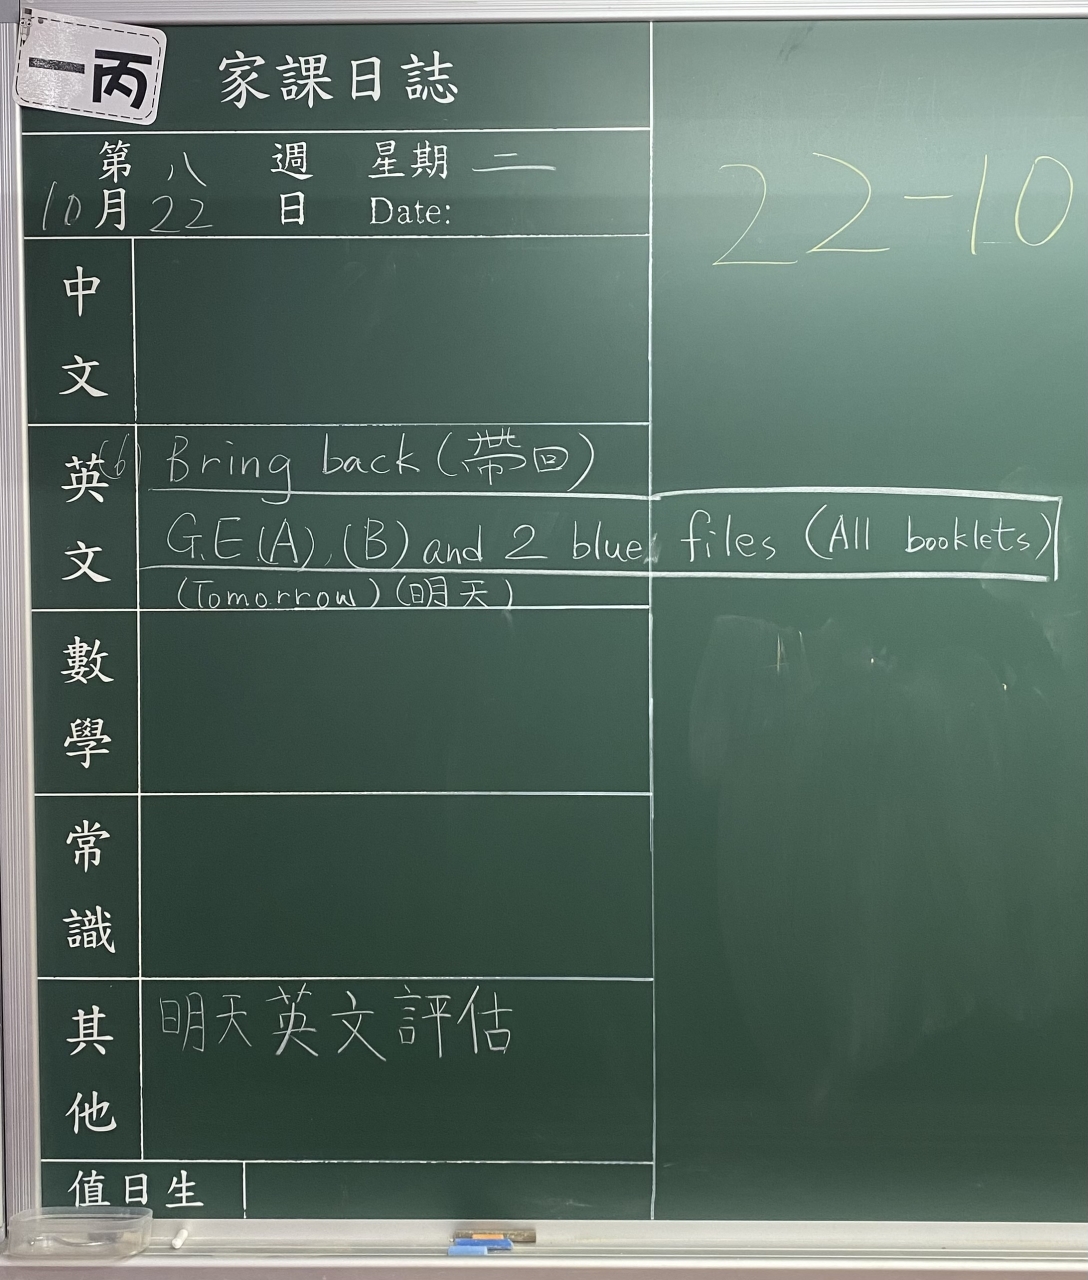 一丙
家課日誌
第 八 週 星期 二
10 月 22 日 Date:
22-10
中文
英文
(6) Bring back (帶回)
G.E (A), (B) and 2 blue files (All booklets)
(Tomorrow) (明天)
數學
常識
其他
明天英文評估
值日生